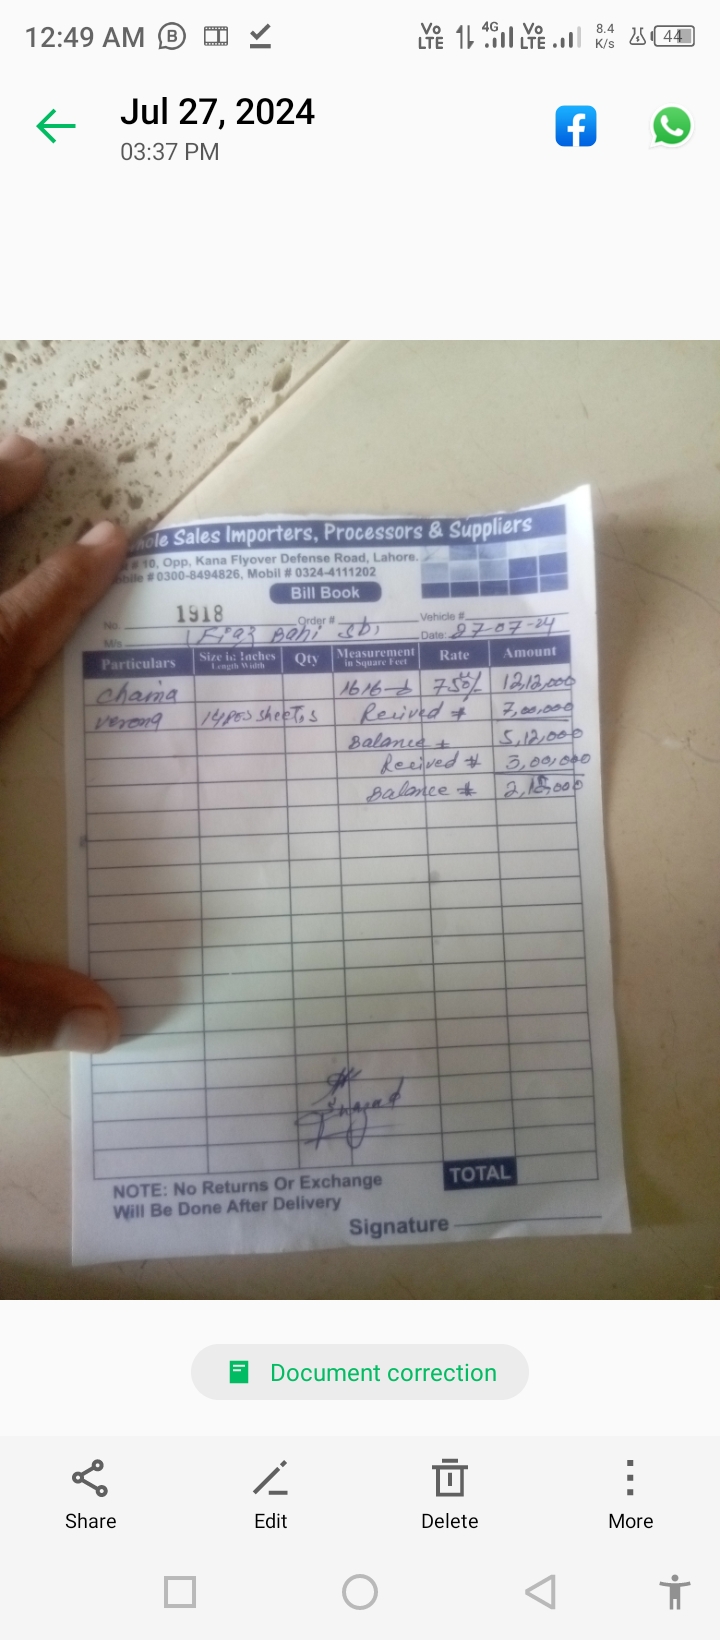 12:49 AM
Vo LTE 4G Vo LTE 8.4 K/s 44
Jul 27, 2024
03:37 PM
hole Sales Importers, Processors & Suppliers
# 10, Opp, Kana Flyover Defense Road, Lahore.
obile # 0300-8494826, Mobil # 0324-4111202
Bill Book
No. 1918 Order # Vehicle #
M/s Bahi sbi Date: 27-07-24
Particulars Size in Inches Length Width Qty Measurement in Square Feet Rate Amount
chaina 1616-6 750/- 12,12,000
verona 14pes sheets Recived # 7,00,000
Balance 5,12,000
Recived # 3,00,000
Balance # 2,12,000
NOTE: No Returns Or Exchange
Will Be Done After Delivery
TOTAL
Signature
Document correction
Share Edit Delete More